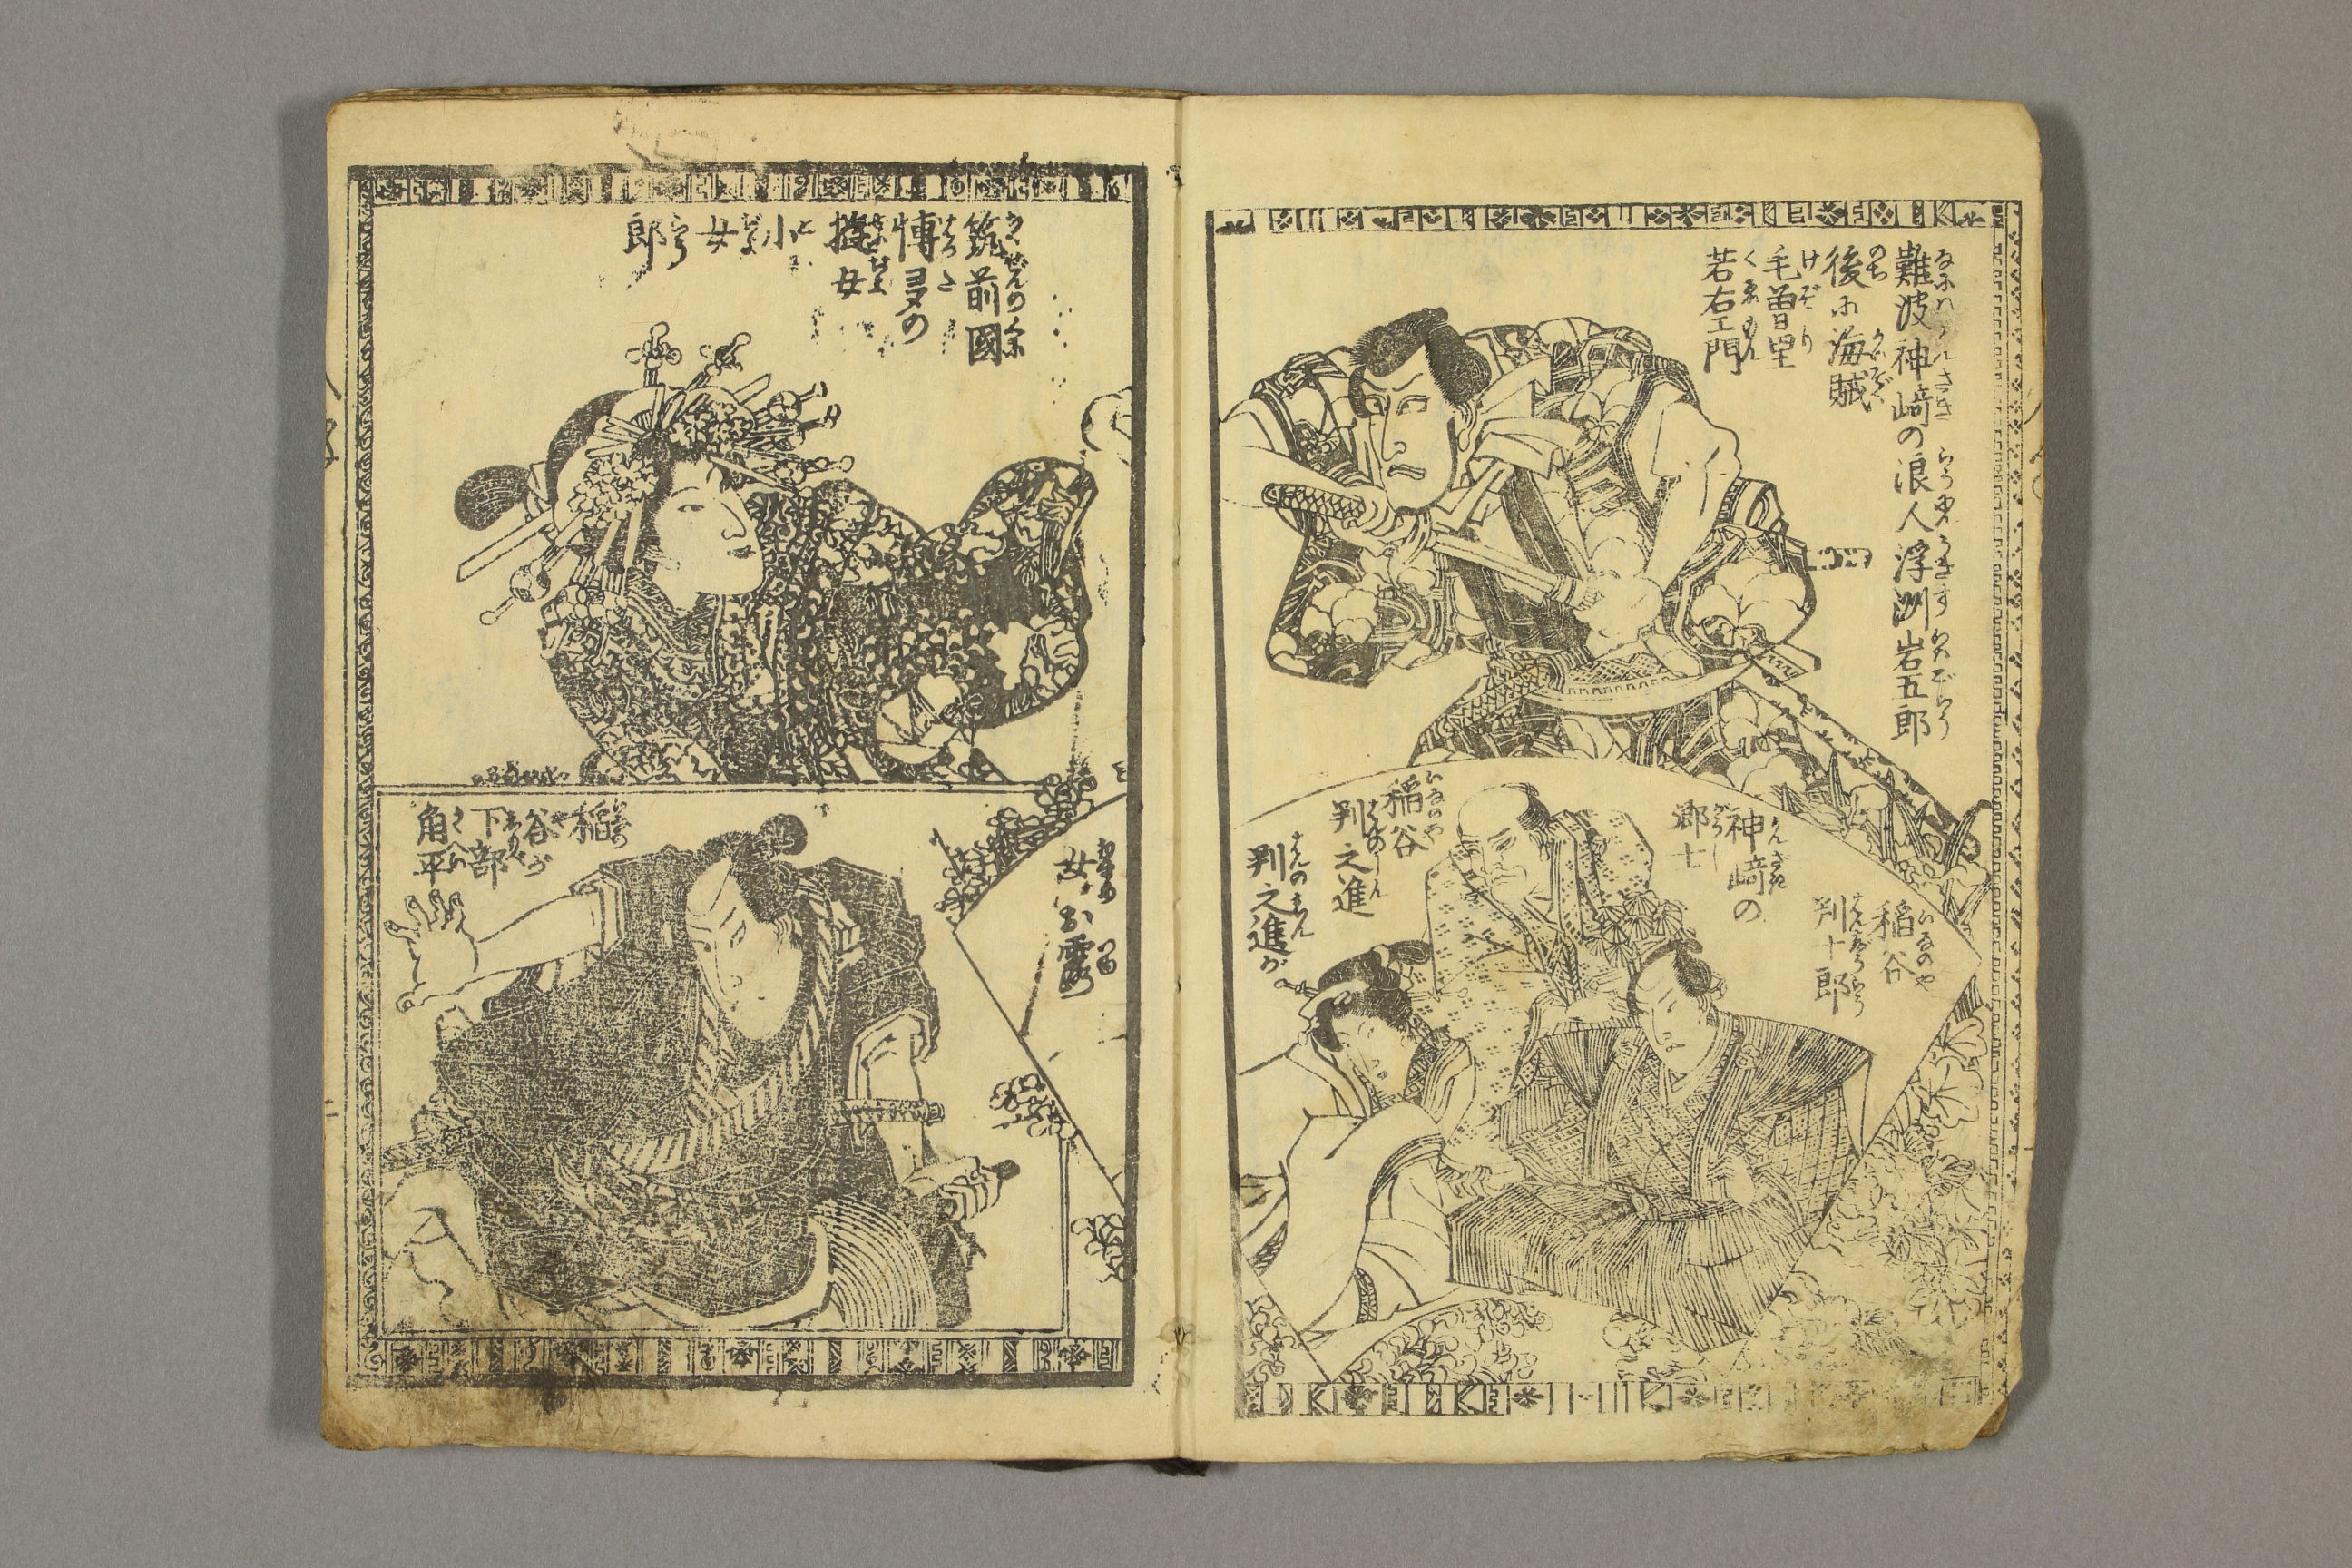 難波神﨑の浪人浮洲岩五郎
後に海賊
毛曽里
九右エ門
稲谷
判十郎
神﨑の
郷士
稲谷
判之進
判之進が
女お露
筑前國
博多の
遊女
小
女
郎
稲
谷が
下部
角平